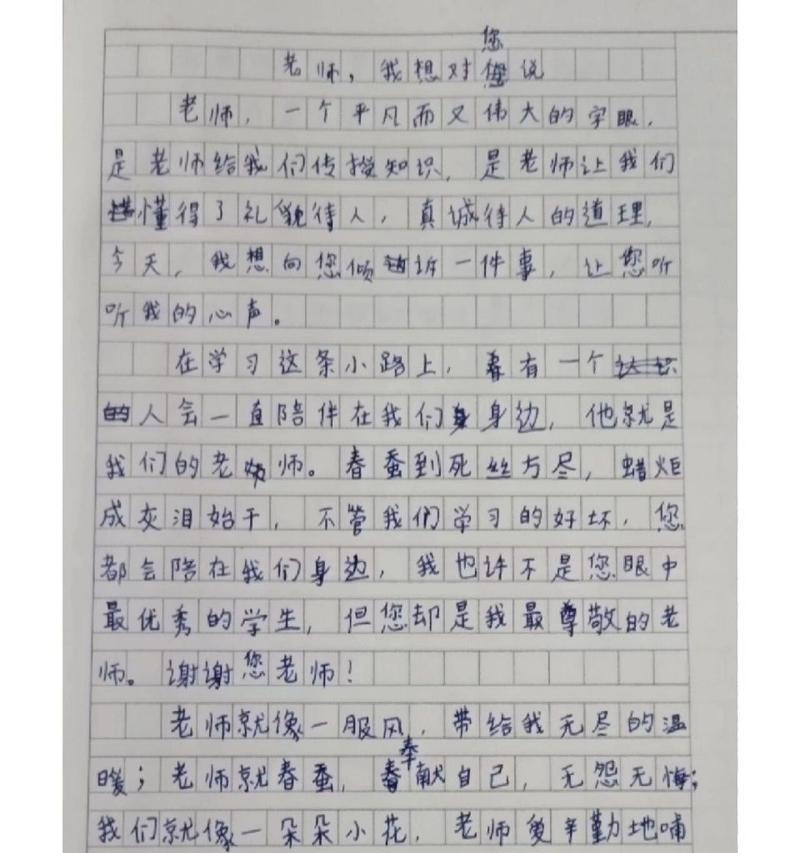 老师，我想对您说
老师，一个平凡而又伟大的字眼，
是老师给我们传授知识，是老师让我们
懂得了礼貌待人，真诚待人的道理，
今天，我想向您倾诉一件事，让您听
听我的心声。
在学习这条小路上，有一个
人会一直陪伴在我们身边，他就是
我们的老师。春蚕到死丝方尽，蜡炬
成灰泪始干，不管我们学习的好坏，您
都会陪在我们身边，我也许不是您眼中
最优秀的学生，但您却是我最尊敬的老
师。谢谢您老师！
老师就像一服风，带给我无尽的温
暖；老师就春蚕，奉献自己，无怨无悔；
我们就像一朵朵小花，老师辛勤地哺